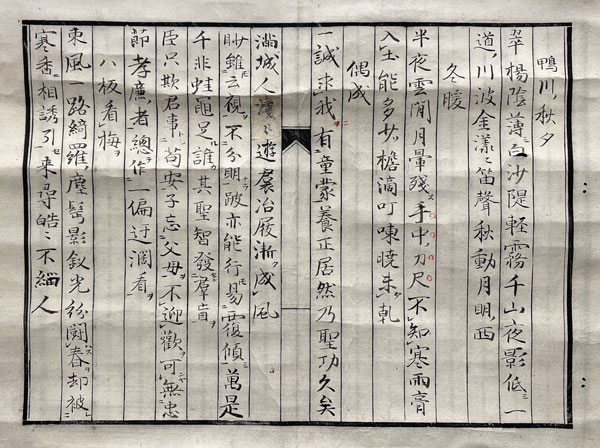 鴨川秋夕
翠楊陰薄白沙隄輕霧千山夜影低一
道川波金漾〻笛聲秋動月明西
冬暖
半夜雲閒月暈殘手中刀尺不知寒雨膏
入土能多少檐滴叮咚曉未乾
偶成
一誠求我有童蒙養正居然乃聖功久矣
滿城人漫〻遊裙冶屐漸成風
眇雖云視不分明跛亦能行易覆傾萬是
千非蛙黽足誰其聖智發羣盲
臣只欺君事苟安子忘父母不迎歡可無忠
節孝廉者總作一偏迂濶看
八坂看梅
東風一路綺羅塵髻影釵光紛鬪春却被
寒香相誘引來尋皓〻不緇人